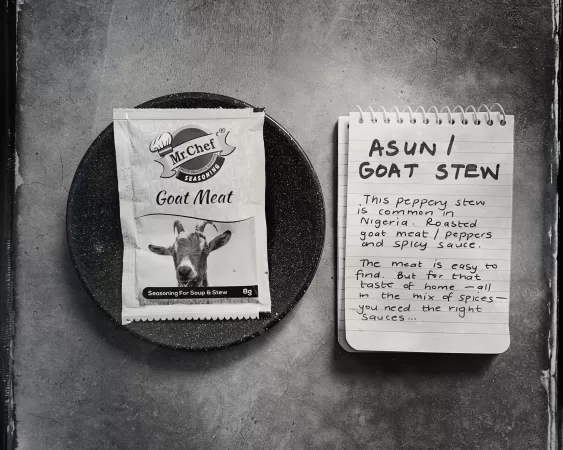 MrChef®
SEASONING
Goat Meat
Seasoning For Soup & Stew 8g
ASUN /
GOAT STEW
This peppery stew
is common in
Nigeria. Roasted
goat meat / peppers
and spicy sauce.
The meat is easy to
find. But for that
taste of home – all
in the mix of spices –
you need the right
sauces...